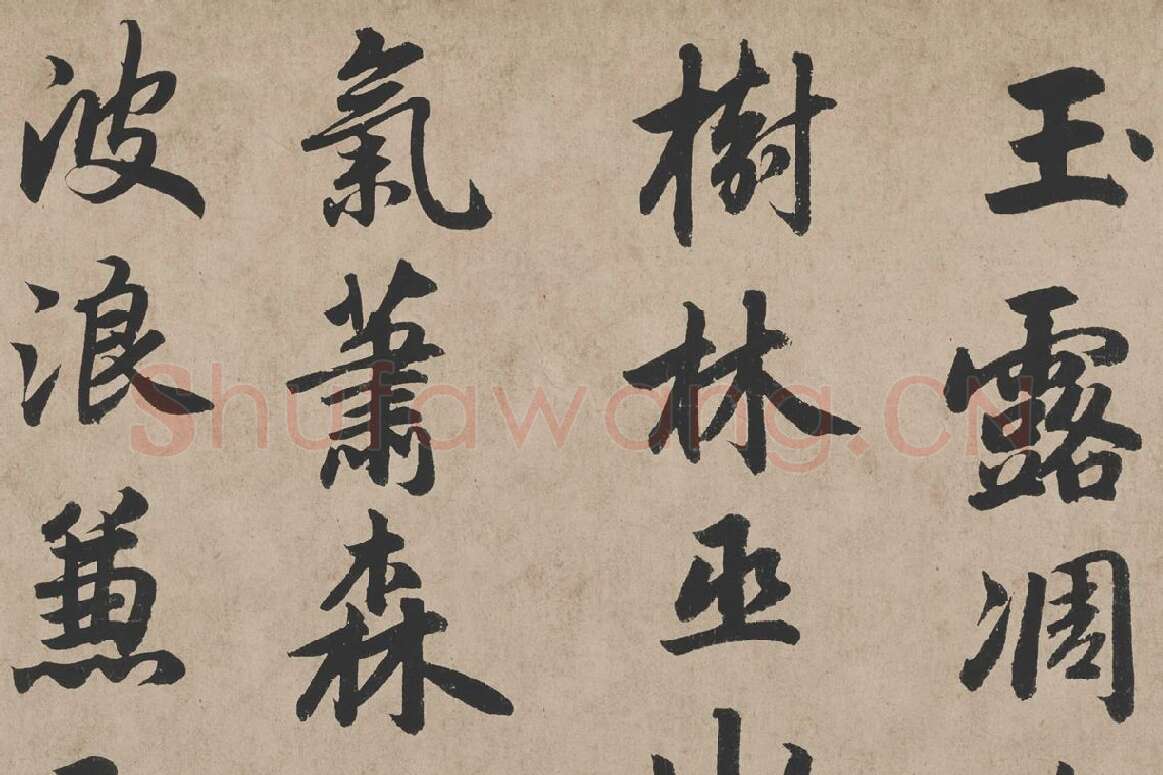 玉露凋
樹林巫山
氣蕭森
波浪兼
Shufawang.CN